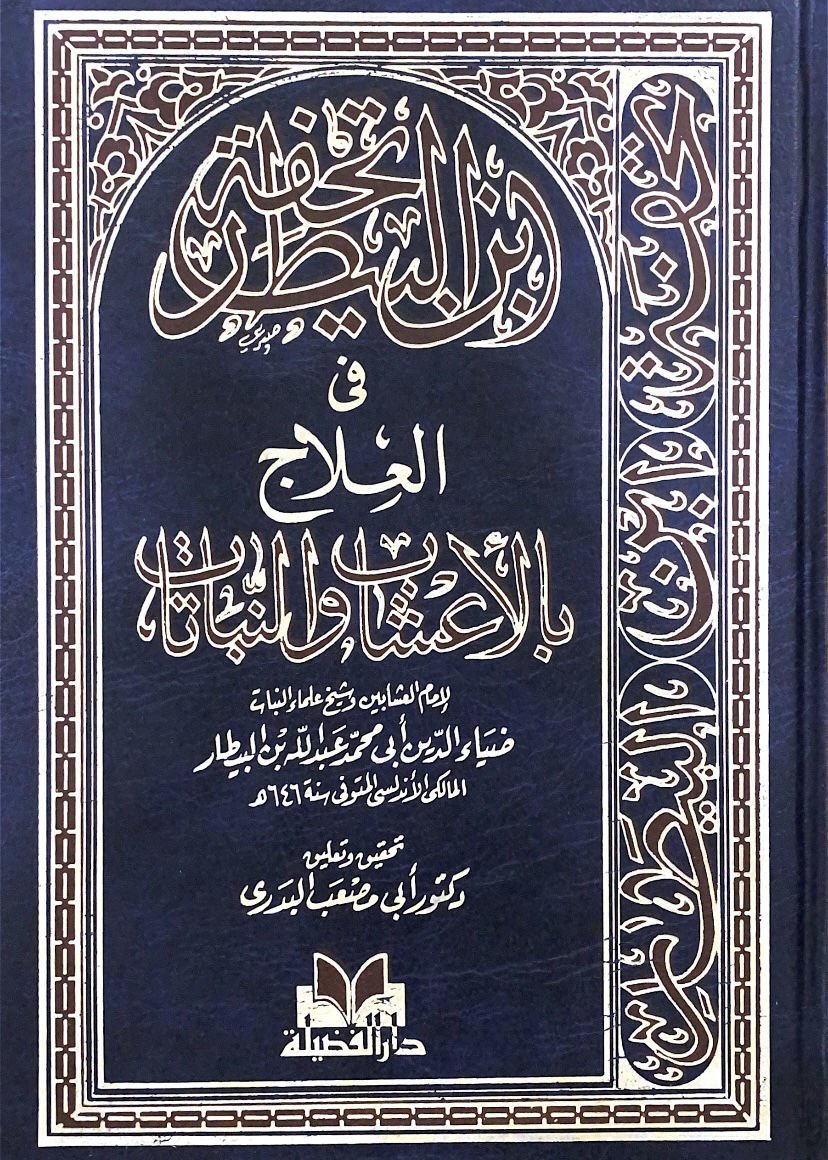 تحفة
ابن البيطار
في
العلاج
بالأعشاب والنباتات
لإمام العشابين وشيخ علماء النبات
ضياء الدين أبى محمد عبد الله بن البيطار
المالكى الأندلسى المتوفى سنة ٦٤٦ هـ
تحقيق وتعليق
دكتور أبى مصعب البدرى
دار الفضيلة
تحفة ابن البيطار